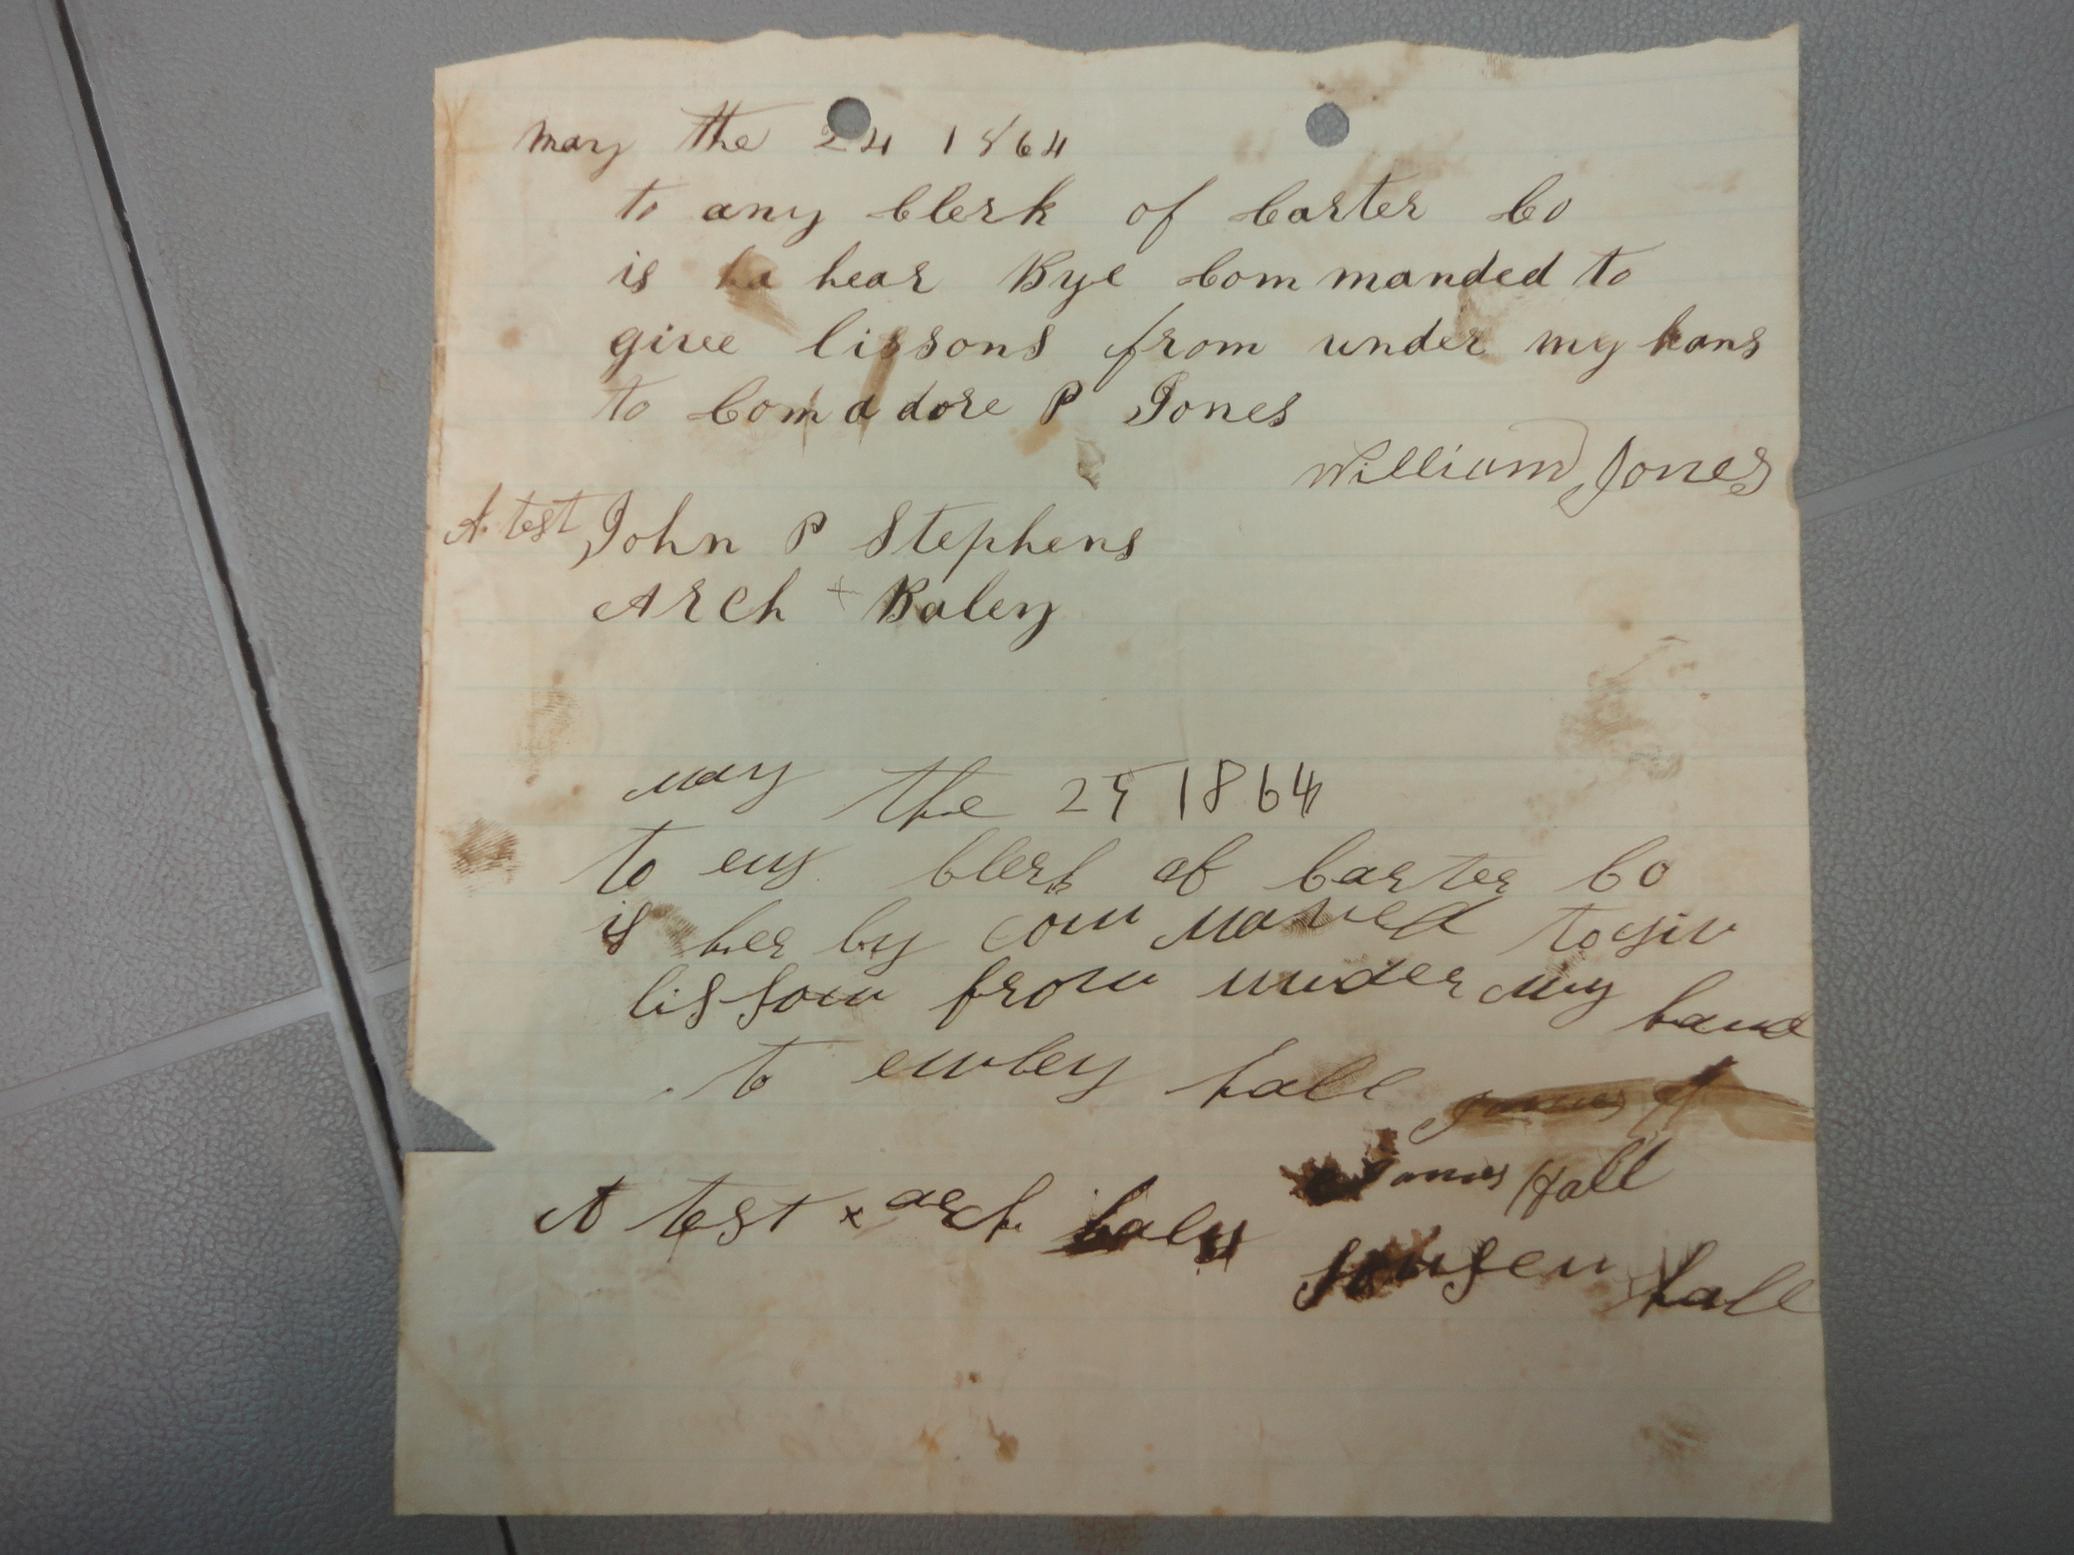 may the 24 1864
to any Clerk of Carter Co
is ha hear Bye Com manded to
give lissons from under my hans
to Com a dore P Jones
William Jones
A test John P Stephens
Arch + Baley
may the 25 1864
to eny Clerk of Carter Co
is her by com maned to giv
lissson from under my hand
to hall
James H
James Hall
A test x arch baly
hall